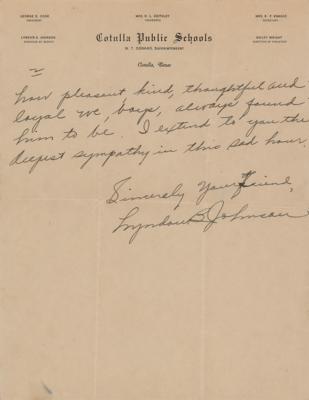 GEORGE E. COOK
MRS. R. L. KEITHLEY
MRS. K. P. KNAGGS
PRESIDENT
SECRETARY
LYNDON B. JOHNSON
Cotulla Public Schools
W. T. DONAHO, SUPERINTENDENT
Cotulla, Texas
2
how pleasant kind, thoughtful and
loyal we, boys, always found
him to be. I extend to you the
deepest sympathy in this sad hour.
Sincerely Your friend,
Lyndon B. Johnson